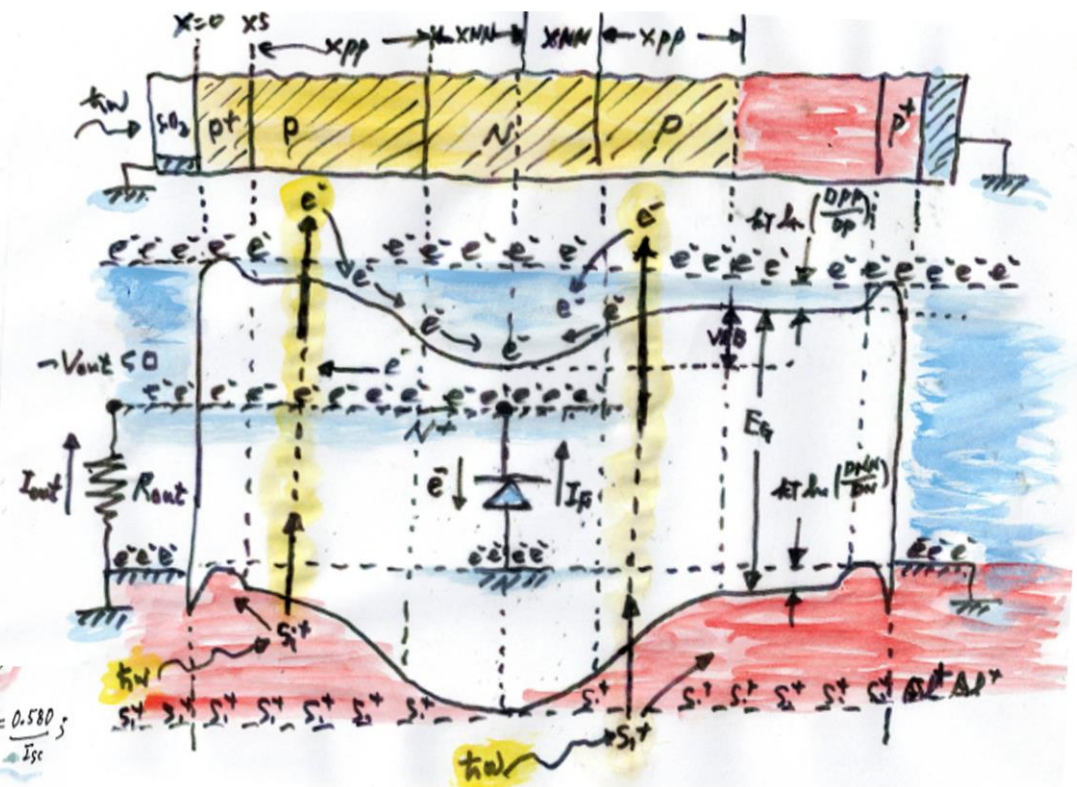 x=0 xs
xpp xNN xNN xpp
ħω SiO2 p+ p N p p+
e⁻ e⁻
kT ln (DPP/DP);
e⁻ e⁻ e⁻ e⁻ e⁻ e⁻ e⁻ e⁻ e⁻ e⁻ e⁻ e⁻ e⁻ e⁻ e⁻ e⁻ e⁻
e⁻ e⁻
e⁻ e⁻
e⁻
-Vout<0 e⁻
e⁻ e⁻ e⁻ e⁻ e⁻ e⁻ e⁻ e⁻ e⁻ e⁻ e⁻
N+ EG
Iout Rout e⁻ kT ln (DNN/DN)
e⁻ e⁻ e⁻ e⁻ e⁻ e⁻ e⁻ e⁻ e⁻ e⁻
Si+
ħω
Si+ Si+ Si+ Si+ Si+ Si+ Si+ Si+ Si+ Si+ Si+ Si+ Al+ Al+
= 0.580/Isc ;
Si+
ħω